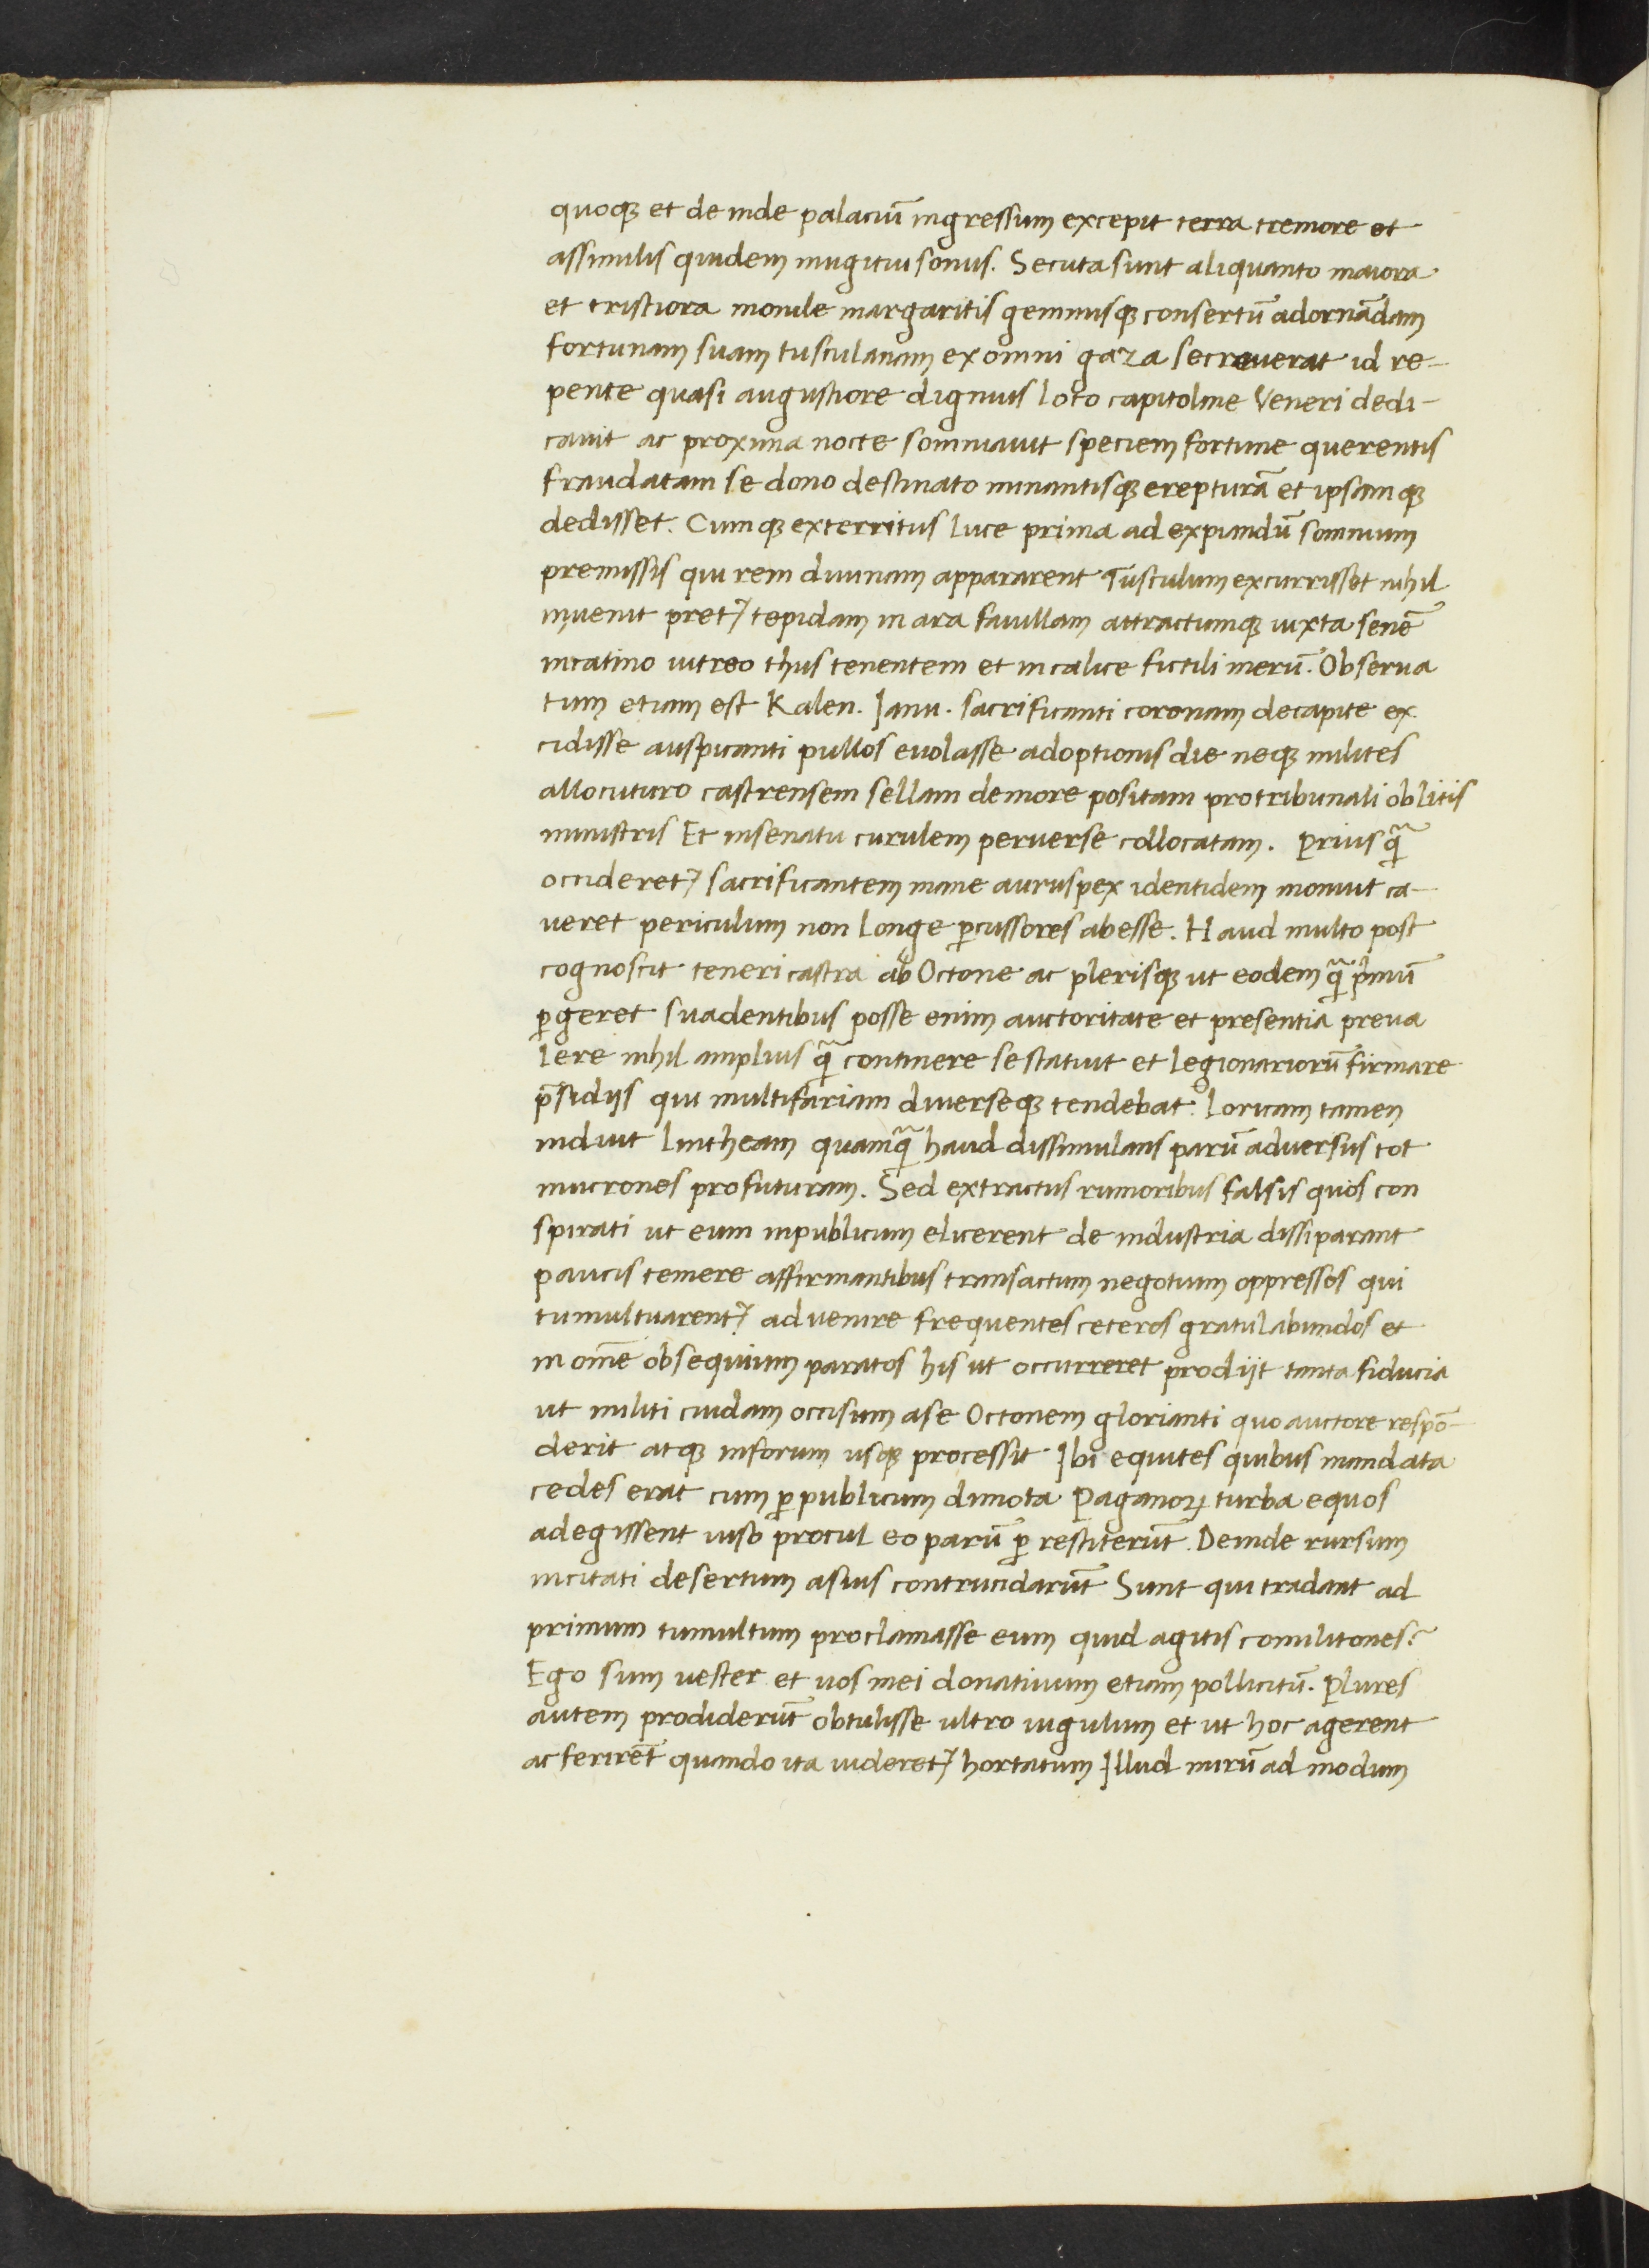 quoqꝫ et de inde palaciū ingressum excepit terra tremore et
assimilis quidem mugitui sonus. Secuta sunt aliquanto maiora
et tristiora monile margaritis gemmisqꝫ consertū adornādam
fortunam suam tusculanam ex omni gaza secreuerat id re-
pente quasi augustiore dignius loco capitoline Veneri dedi-
cauit ac proxima nocte somniauit speciem fortune querentis
fraudatam se dono destinato minantisqꝫ erepturā et ipsam qꝫ
dedisset. Cumqꝫ exterritus luce prima ad expiandū somnium
premissis qui rem diuinam appararent Tusculum excurrisset nihil
inuenit pretꝫ tepidam in ara fauillam attractumqꝫ iuxta senē
incatino uitreo thus tenentem et in calice fictili merū. Obserua
tum etiam est Kalen. Janu. sacrificanti coronam decapite ex
cidisse auspicanti pullos euolasse adoptionis die neqꝫ milites
allocuturo castrensem sellam demore positam protribunali oblitis
ministris Et insenatu curulem peruerse collocatam. Priusꝗ̃
occideretꝫ sacrificantem mane auruspex identidem monuit ca-
ueret periculum non longe ꝑcussores abesse. Haud multo post
cognoscit teneri castra ab Octone ac plerisqꝫ ut eodem ꝗ̃ pͥmū
ꝑgeret suadentibus posse enim auctoritate et presentia preua
lere nihil amplius ꝗ̃ continere se statuit et legionariorū firmare
p̄sidijs qui multifariam diuerseqꝫ tendebāt. loricam tamen
induit lintheam quamꝗ̃ haud dissimulans parū aduersus tot
mucrones profuturam. Sed extractus rumoribus falsis quos con
spirati ut eum inpublicum elicerent de industria dissiparant
paucis temere affirmantibus transactum negotium oppressos qui
tumultuarentꝫ aduenire frequentes ceteros gratulabundos et
in om̄e obsequium paratos his ut occurreret prodijt tanta fiducia
ut militi cuidam occisum ase Octonem glorianti quo auctore respō-
derit atqꝫ inforum usqꝫ processit Ibi equites quibus mandata
cedes erat cum ꝑ publicum dimota Paganoꝝ turba equos
adegissent uiso procul eo parū ꝑ restiterūt. Deinde rursum
incitati desertum asuis contrucidarūt Sunt qui tradant ad
primum tumultum proclamasse eum quid agitis comilitones?
Ego sum uester et uos mei donatiuum etiam pollicitū. Plures
autem prodiderūt obtulisse ultro iugulum et ut hoc agerent
ac ferirēt quando ita uideretꝫ hortatum Illud mirū ad modum